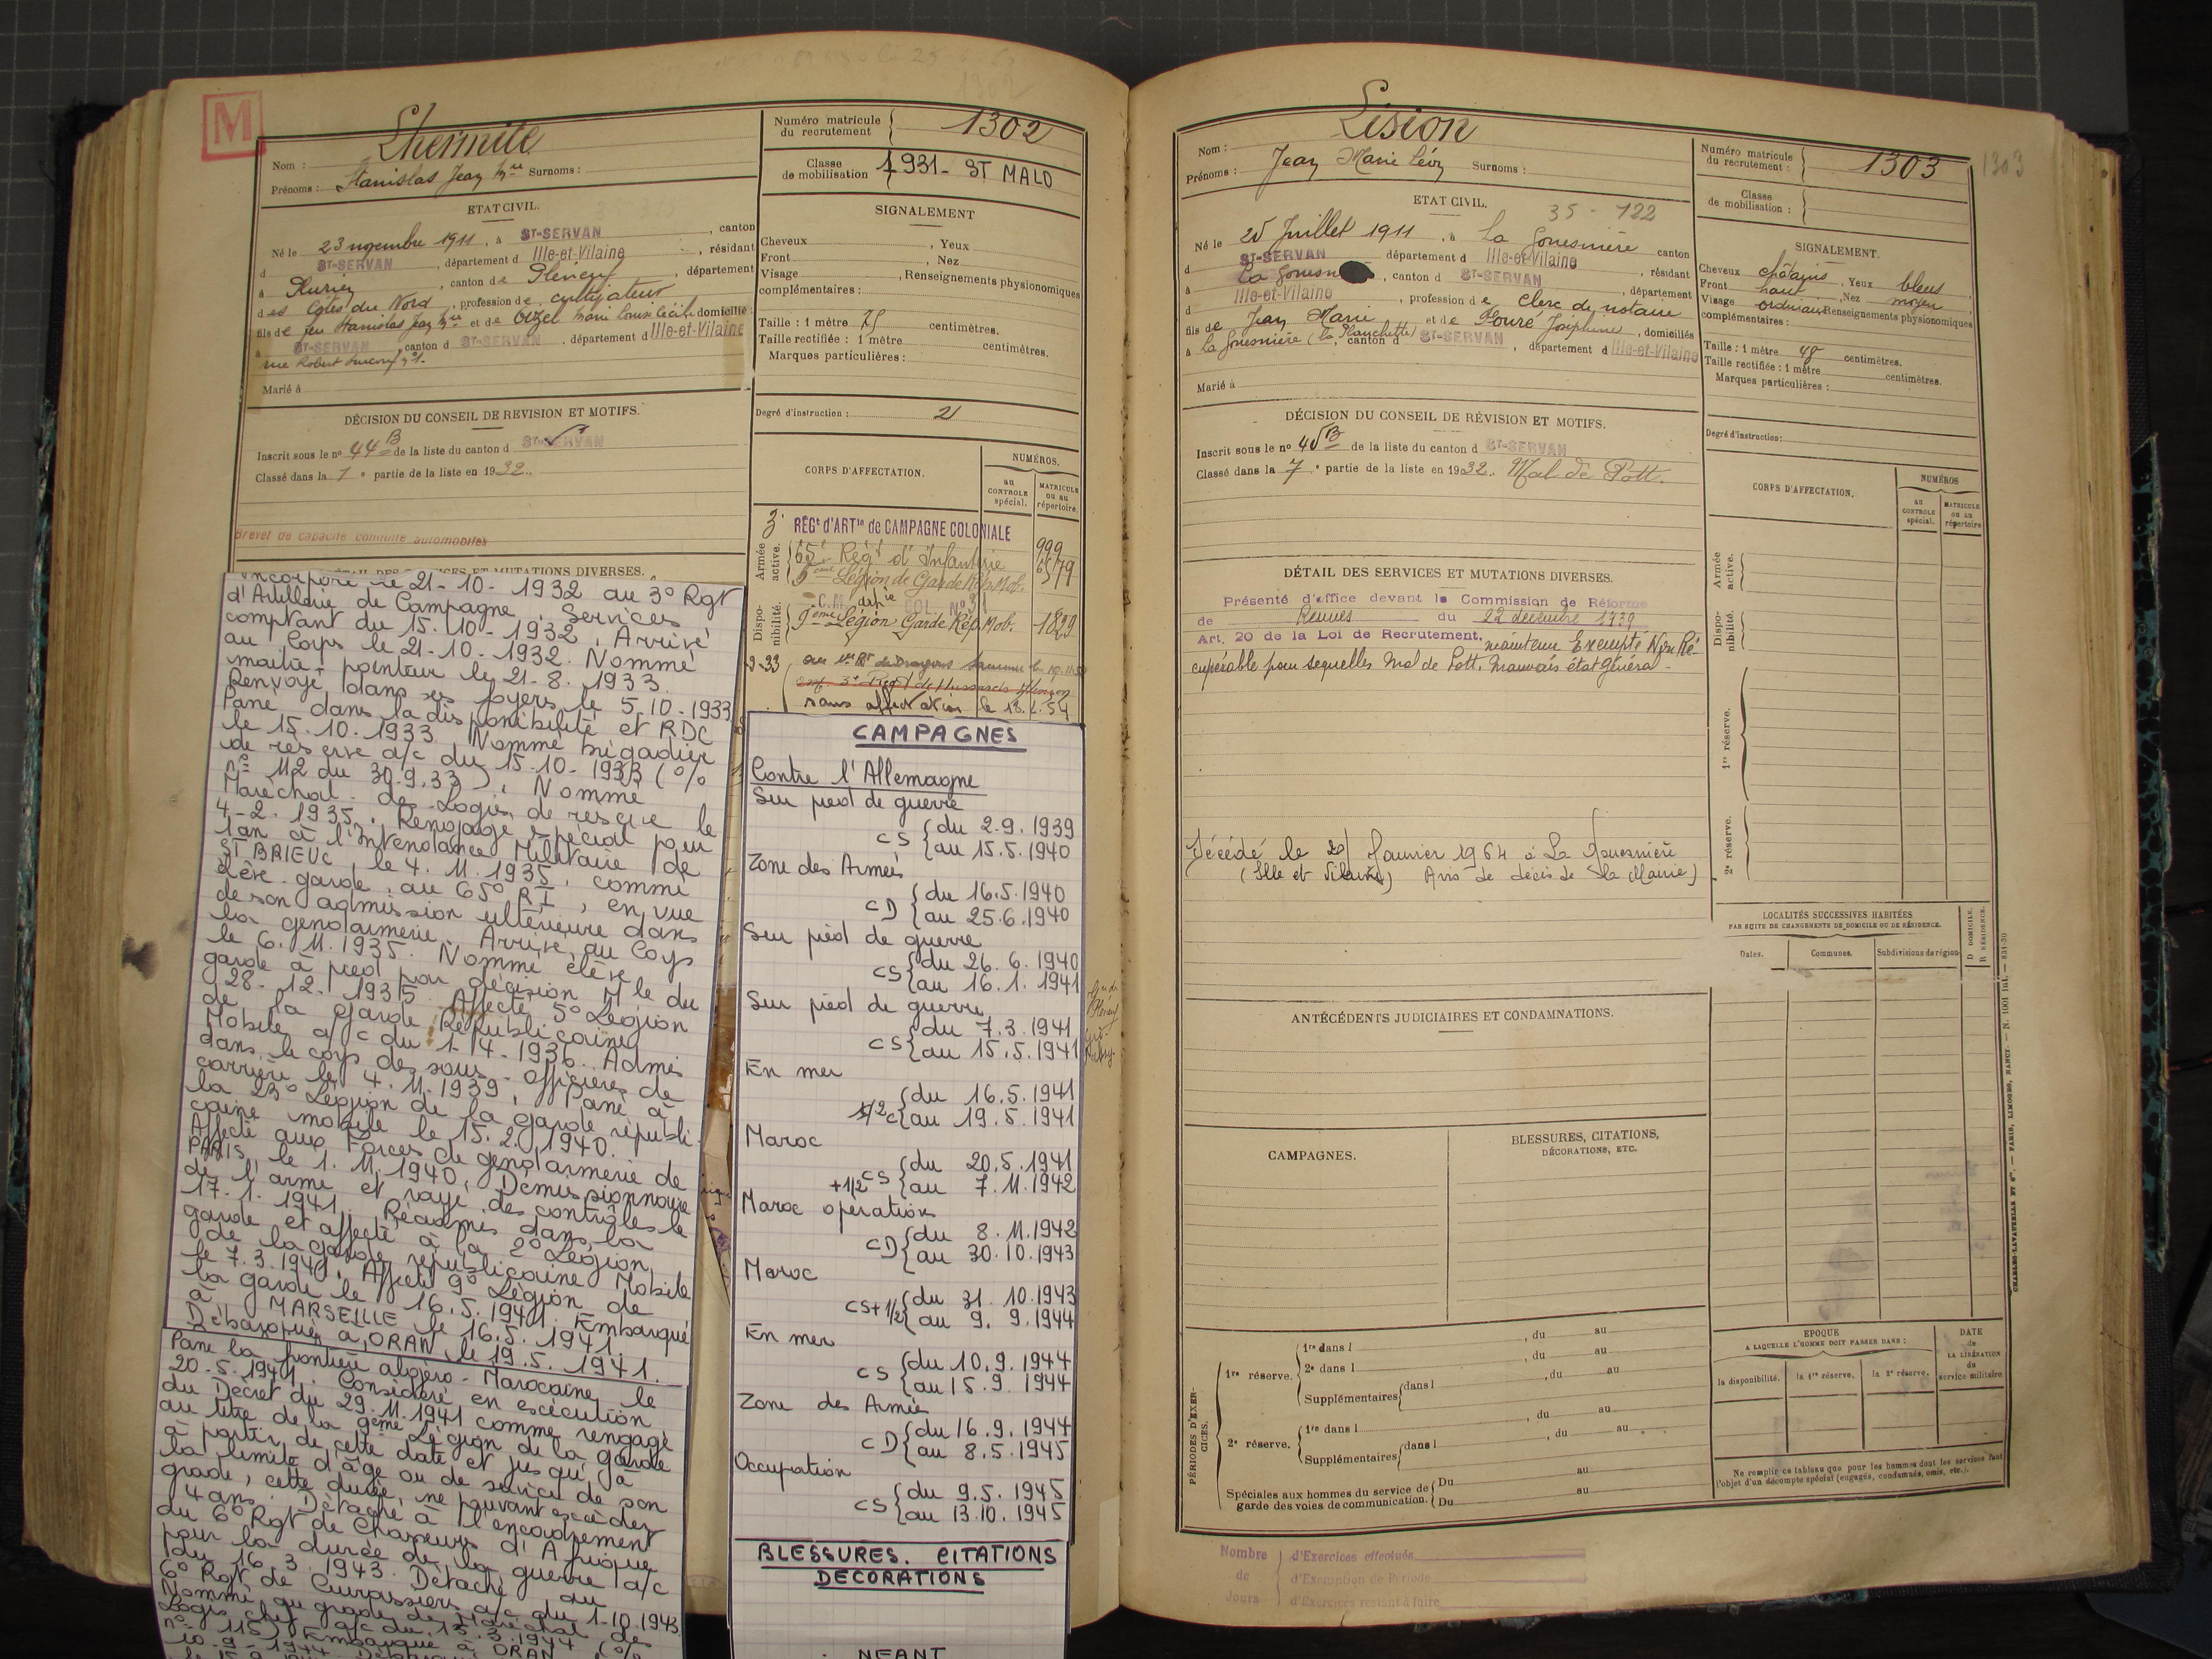 M
Nom : Lhermite
Prénoms : Stanislas Jean Surnoms :
Numéro matricule du recrutement 1302
Classe de mobilisation 1931 - ST MALO
ETAT CIVIL.
Né le 23 novembre 1911, à ST-SERVAN, canton
d ST-SERVAN, département d Ille-et-Vilaine, résidant
à Plurien, canton de, département
des Côtes du Nord, profession de cultivateur
fils de feu Stanislas Jean et de Marie Louise Cécile domicilié
à ST-SERVAN, canton d ST-SERVAN, département d Ille-et-Vilaine
rue Robert Surcouf
Marié à
SIGNALEMENT
Cheveux, Yeux
Front, Nez
Visage, Renseignements physionomiques
complémentaires :
Taille : 1 mètre 75 centimètres.
Taille rectifiée : 1 mètre centimètres.
Marques particulières :
Degré d'instruction : 2
DÉCISION DU CONSEIL DE REVISION ET MOTIFS.
Inscrit sous le nº 44 B de la liste du canton d ST-SERVAN
Classé dans la 1e partie de la liste en 1932.
Brevet de capacité conduite automobiles
DÉTAIL DES SERVICES ET MUTATIONS DIVERSES.
CORPS D'AFFECTATION.
NUMÉROS.
au CONTROLE spécial.
MATRICULE ou au répertoire.
Armée active.
3e RÉGt d'ARTie de CAMPAGNE COLONIALE 999
65e Régt d'Infanterie 6579
5ème Légion de Garde Rép. Mob.
Disponibilité.
COL. Nº 31
9ème Légion Garde Rép. Mob. 1829
sans affectation le
Incorporé le 21-10-1932 au 3º Rgt
d'Artillerie de Campagne. Services
comptant du 15.10-1932. Arrivé
au Corps le 21-10-1932. Nommé
maître-pointeur le 21-8.1933.
Renvoyé dans ses foyers le 5.10-1933
Passé dans la disponibilité et RDC
le 15.10.1933 Nommé brigadier
de réserve a/c du 15.10-1933 (%
nº 112 du 30.9.33), Nommé
Maréchal-des-Logis de réserve le
4-2.1935. Rengagé spécial pour
1 an à l'Intendance Militaire de
ST BRIEUC, le 4.11.1935, comme
élève-garde au 65º RI, en vue
de son admission ultérieure dans
la gendarmerie. Arrivé au Corps
le 6.11.1935. Nommé élève
garde à pied par décision Mle du
28.12.1935. Affecté 5º Légion
de la Garde Républicaine
Mobile a/c du 1-14-1936. Admis
dans le corps des sous-officiers de
carrière le 4.11.1939, Passé à
la 23º Légion de la garde républi-
caine mobile le 15.2.1940.
Affecté aux Forces de gendarmerie de
PARIS, le 1.11.1940, Démissionnaire
de l'arme et rayé des contrôles le
17.1.1941. Réadmis dans la
garde et affecté à la 2º Légion
de la garde républicaine Mobile
le 7.3.1941. Affecté 9º Légion de
la garde le 16.5.1941. Embarqué
à MARSEILLE le 16.5.1941.
Débarqué à ORAN, le 19.5.1941.
Passe la frontière algéro-Marocaine le
20-5.1941. Considéré en exécution
du Décret du 29.11.1941 comme rengagé
au titre de la 9ème Légion de la garde
à partir de cette date et jusqu'à
la limite d'âge ou de service de son
grade, cette durée, ne pouvant excéder
4 ans. Détaché à l'encadrement
du 6º Rgt de Chasseurs d'Afrique
pour la durée de la guerre a/c
du 16.3.1943. Détaché du
6º Rgt de Cuirassiers a/c du 1-10.1943.
Nommé au grade de Maréchal des
Logis chef a/c du 13.3.1944 (%
nº 115) Embarqué à ORAN
10-9-1944
CAMPAGNES
Contre l'Allemagne
Sur pied de guerre
CS { du 2.9.1939
au 15.5.1940
Zone des Armées
CD { du 16.5.1940
au 25.6.1940
Sur pied de guerre
CS { du 26.6.1940
au 16.1.1941
Sur pied de guerre
CS { du 7.3.1941
au 15.5.1941
En mer
1/2 C { du 16.5.1941
au 19.5.1941
Maroc
+1/2 CS { du 20.5.1941
au 7.11.1942
Maroc opérations
CD { du 8.11.1942
au 30.10.1943
Maroc
CS+1/2 { du 31.10.1943
au 9.9.1944
En mer
CS { du 10.9.1944
au 15.9.1944
Zone des Armées
CD { du 16.9.1944
au 8.5.1945
Occupation
CS { du 9.5.1945
au 13.10.1945
BLESSURES. CITATIONS
DECORATIONS
NEANT
Nom : Lision
Prénoms : Jean Marie Surnoms :
Numéro matricule du recrutement : 1303
1303
Classe de mobilisation :
ETAT CIVIL. 35-122
Né le 25 Juillet 1911, à La Gouesnière canton
d ST-SERVAN département d Ille-et-Vilaine, résidant
à La, canton d ST-SERVAN, département
Ille-et-Vilaine, profession de clerc de notaire
fils de Jean Marie et de Joséphine, domiciliés
à La Gouesnière (La Planchette), canton d ST-SERVAN, département d Ille-et-Vilaine
Marié à
SIGNALEMENT.
Cheveux châtains, Yeux bleus
Front haut, Nez moyen
Visage ordinaire Renseignements physionomiques
complémentaires :
Taille : 1 mètre 48 centimètres.
Taille rectifiée : 1 mètre centimètres.
Marques particulières :
Degré d'instruction :
DÉCISION DU CONSEIL DE RÉVISION ET MOTIFS.
Inscrit sous le nº 45 B de la liste du canton d ST-SERVAN
Classé dans la 7e partie de la liste en 1932. Mal de Pott.
CORPS D'AFFECTATION.
NUMÉROS
au CONTROLE spécial.
MATRICULE ou au répertoire
Armée active.
Disponibilité.
1re réserve.
2e réserve.
DÉTAIL DES SERVICES ET MUTATIONS DIVERSES.
Présenté d'office devant la Commission de Réforme
de Rennes du 22 décembre 1939
Art. 20 de la Loi de Recrutement. maintenu Exempté Non Ré-
cupérable pour séquelles Mal de Pott. Mauvais état général.
Décédé le Janvier 1964 à La Gouesnière
(Ille et Vilaine) Avis de décès de la Mairie)
LOCALITÉS SUCCESSIVES HABITÉES
PAR SUITE DE CHANGEMENTS DE DOMICILE OU DE RÉSIDENCE.
D DOMICILE. R RÉSIDENCE.
Dates. Communes. Subdivisions de région
ANTÉCÉDENTS JUDICIAIRES ET CONDAMNATIONS.
CAMPAGNES.
BLESSURES, CITATIONS,
DÉCORATIONS, ETC.
PÉRIODES D'EXERCICES.
1re réserve. 1re dans l, du au
2e dans l, du au
Supplémentaires dans l, du au
2e réserve. 1re dans l, du au
Supplémentaires dans l, du au
dans l
Spéciales aux hommes du service de garde des voies de communication. Du au
Du au
EPOQUE
A LAQUELLE L'HOMME DOIT PASSER DANS :
la disponibilité. la 1re réserve. la 2e réserve.
DATE de LA LIBÉRATION du service militaire.
Ne remplir ce tableau que pour les hommes dont les services font
l'objet d'un décompte spécial (engagés, condamnés, omis, etc.).
CHARLES-LAVAUZELLE ET Cie. — PARIS, LIMOGES, NANCY.
Nombre de Jours
d'Exercices effectués
d'Exemption de Période
d'Exercices restant à faire